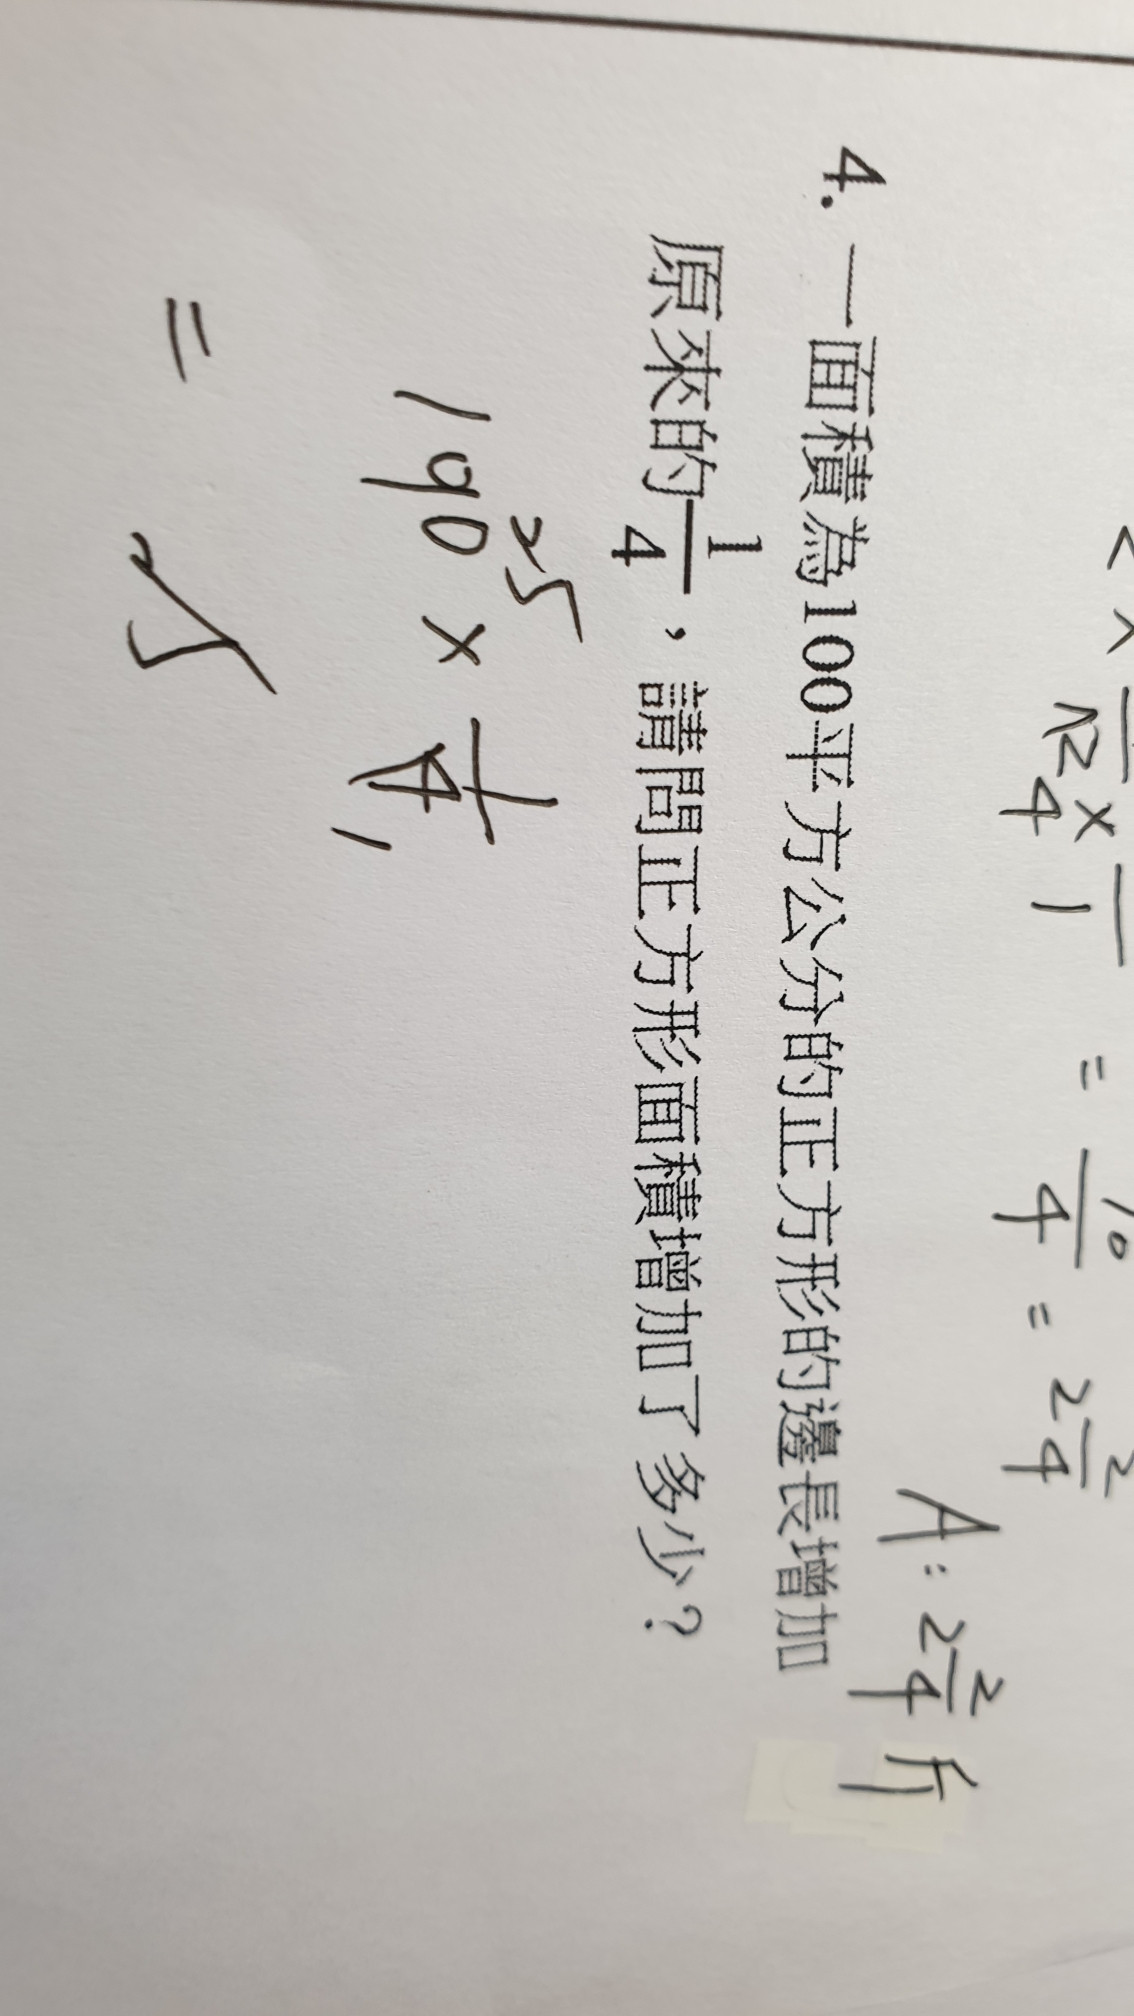 = 10/4 = 2 2/4
A: 2 2/4 斤
4. 一面積為100平方公分的正方形的邊長增加
原來的1/4，請問正方形面積增加了多少？
25
100 × 1/4
1
= 25